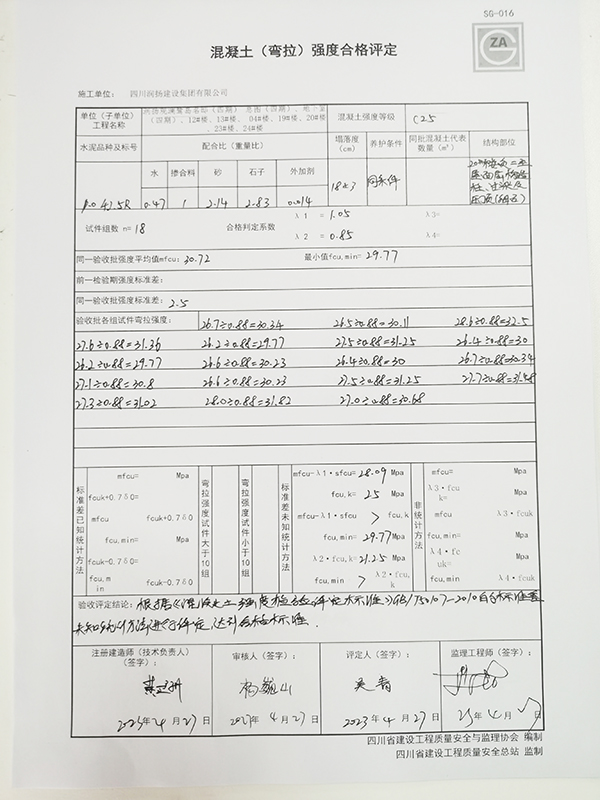 SG-016
ZA
混凝土（弯拉）强度合格评定
施工单位： 四川润扬建设集团有限公司
单位（子单位）工程名称
（四期）、12#楼、13#楼、 04#楼、19#楼、20#楼
、23#楼、24#楼
混凝土强度等级 C25
水泥品种及标号 配合比（重量比） 塌落度（cm） 养护条件 同批混凝土代表数量（m³） 结构部位
水 掺合料 砂 石子 外加剂
P.O 42.5R 0.47 1 2.14 2.83 0.014 18±3 同条件
试件组数 n= 18 合格判定系数 λ1 = 1.05 λ3=
λ2 = 0.85 λ4=
同一验收批强度平均值mfcu: 30.72 最小值fcu,min= 29.77
前一检验期强度标准差:
同一验收批强度标准差: 2.5
验收批各组试件弯拉强度: 26.7÷0.88=30.34 26.5÷0.88=30.11 28.6÷0.88=32.5
27.6÷0.88=31.36 26.2÷0.88=29.77 27.5÷0.88=31.25 26.4÷0.88=30
26.2÷0.88=29.77 26.6÷0.88=30.23 26.4÷0.88=30 26.7÷0.88=30.34
27.1÷0.88=30.8 26.6÷0.88=30.23 27.5÷0.88=31.25 27.7÷0.88=31.48
27.3÷0.88=31.02 28.0÷0.88=31.82 27.0÷0.88=30.68
标准差已知统计方法
mfcu= Mpa
fcuk+0.7δ0= Mpa
mfcu fcuk+0.7δ0
fcu,min= Mpa
fcuk-0.7δ0= Mpa
fcu,min fcuk-0.7δ0
弯拉强度试件大于10组
弯拉强度试件小于10组
标准差未知统计方法
mfcu-λ1·sfcu= 28.09 Mpa
fcu,k= 25 Mpa
mfcu-λ1·sfcu > fcu,k
fcu,min= 29.77 Mpa
λ2·fcu,k= 21.25 Mpa
fcu,min > λ2·fcu,k
非统计方法
mfcu= Mpa
λ3·fcuk= Mpa
mfcu λ3·fcuk
fcu,min= Mpa
λ4·fcuk= Mpa
fcu,min λ4·fcuk
验收评定结论: 根据《混凝土强度检验评定标准》GB/T50107-2010的标准差
未知统计方法进行评定,达到合格标准.
注册建造师（技术负责人）（签字）： 审核人（签字）： 评定人（签字）： 监理工程师（签字）：
吴青
2023年 4月 27日 2023年 4月 27日 2023年 4月 27日 23年 4月 27日
四川省建设工程质量安全与监理协会 编制
四川省建设工程质量安全总站 监制